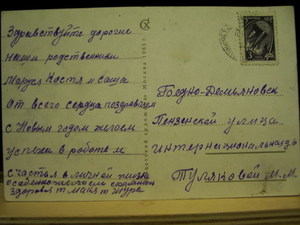 Здравствуйте дорогие
наши родственники
Маруся Костя и Саша
От всего сердца поздравляем
с Новым годом желаем
успехи в работе и
счастья в личной жизни
здоровья
Бедно-Демьяновск
Пензенской улица
Интернациональная
Туляковой М.М.